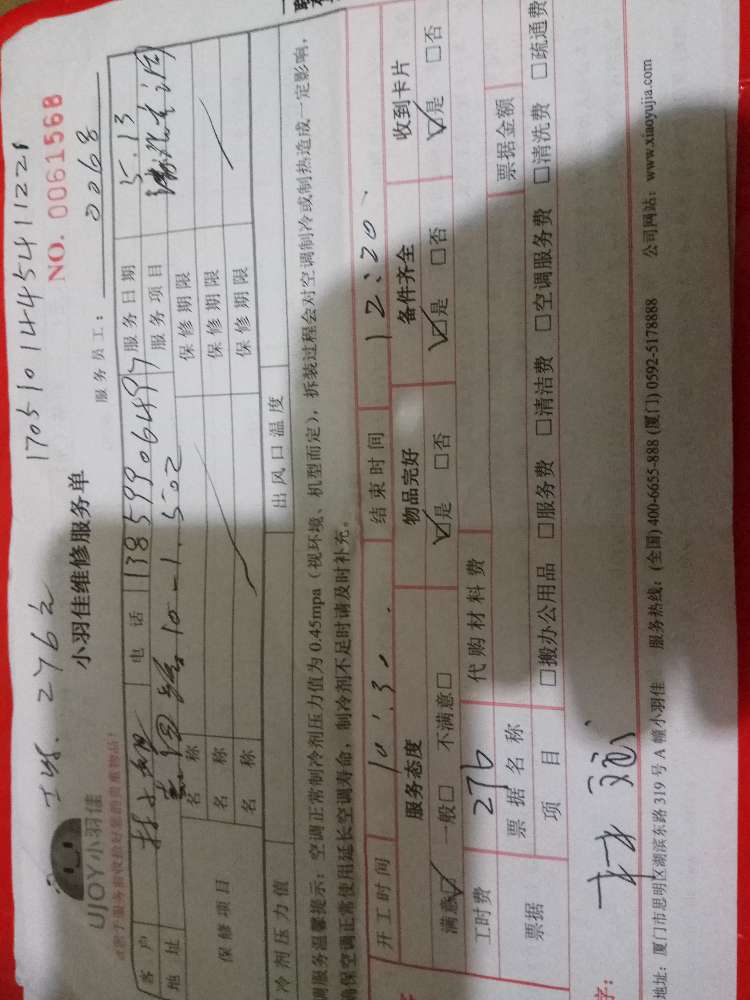 276元 1705101445411221
UJOY小羽佳 小羽佳维修服务单 NO. 0061568
服务员工: 0068
客户 电话 13859906497 服务日期 5.13
地址 10-1.502 服务项目
保修项目 名称 保修期限
名称 保修期限
名称 保修期限
冷剂压力值 出风口温度
调服务温馨提示:空调正常制冷剂压力值为 0.45mpa(视环境、机型而定),拆装过程会对空调制冷或制热造成一定影响,
确保空调正常使用延长空调寿命,制冷剂不足时请及时补充。
开工时间 10:30 结束时间 12:20
服务态度 物品完好 备件齐全 收到卡片
满意☑ 一般□ 不满意□ ☑是 □否 ☑是 □否 ☑是 □否
工时费 276 代购材料费
票据 票据名称 票据金额
项目 □搬办公用品 □服务费 □清洁费 □空调服务费 □清洗费 □疏通费
字:
地址:厦门市思明区湖滨东路 319 号 A 幢小羽佳 服务热线:(全国) 400-6655-888 (厦门) 0592-5178888 公司网站:www.xiaoyujia.com